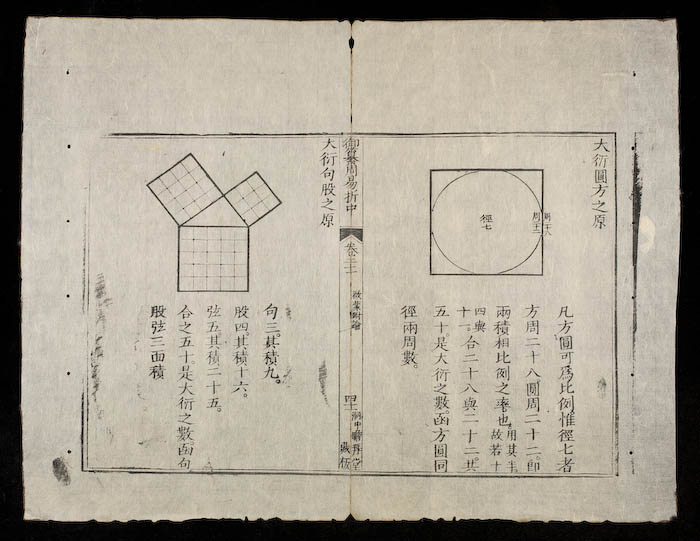 大衍圓方之原
周二十八
周二十二
徑七
凡方圓可為比例惟徑七者
方周二十八圓周二十二即
兩積相比例之率也用其半故若十
四與十一合二十八與二十二共
五十是大衍之數函方圓同
徑兩周數
御纂周易折中
卷二十二
啟蒙附論
四十
大衍句股之原
句三其積九
股四其積十六
弦五其積二十五
合之五十是大衍之數函句
股弦三面積